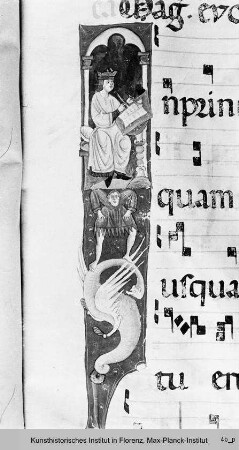 Mag. euo
nprin
quam
usqua
tu en
Kunsthistorisches Institut in Florenz, Max-Planck-Institut